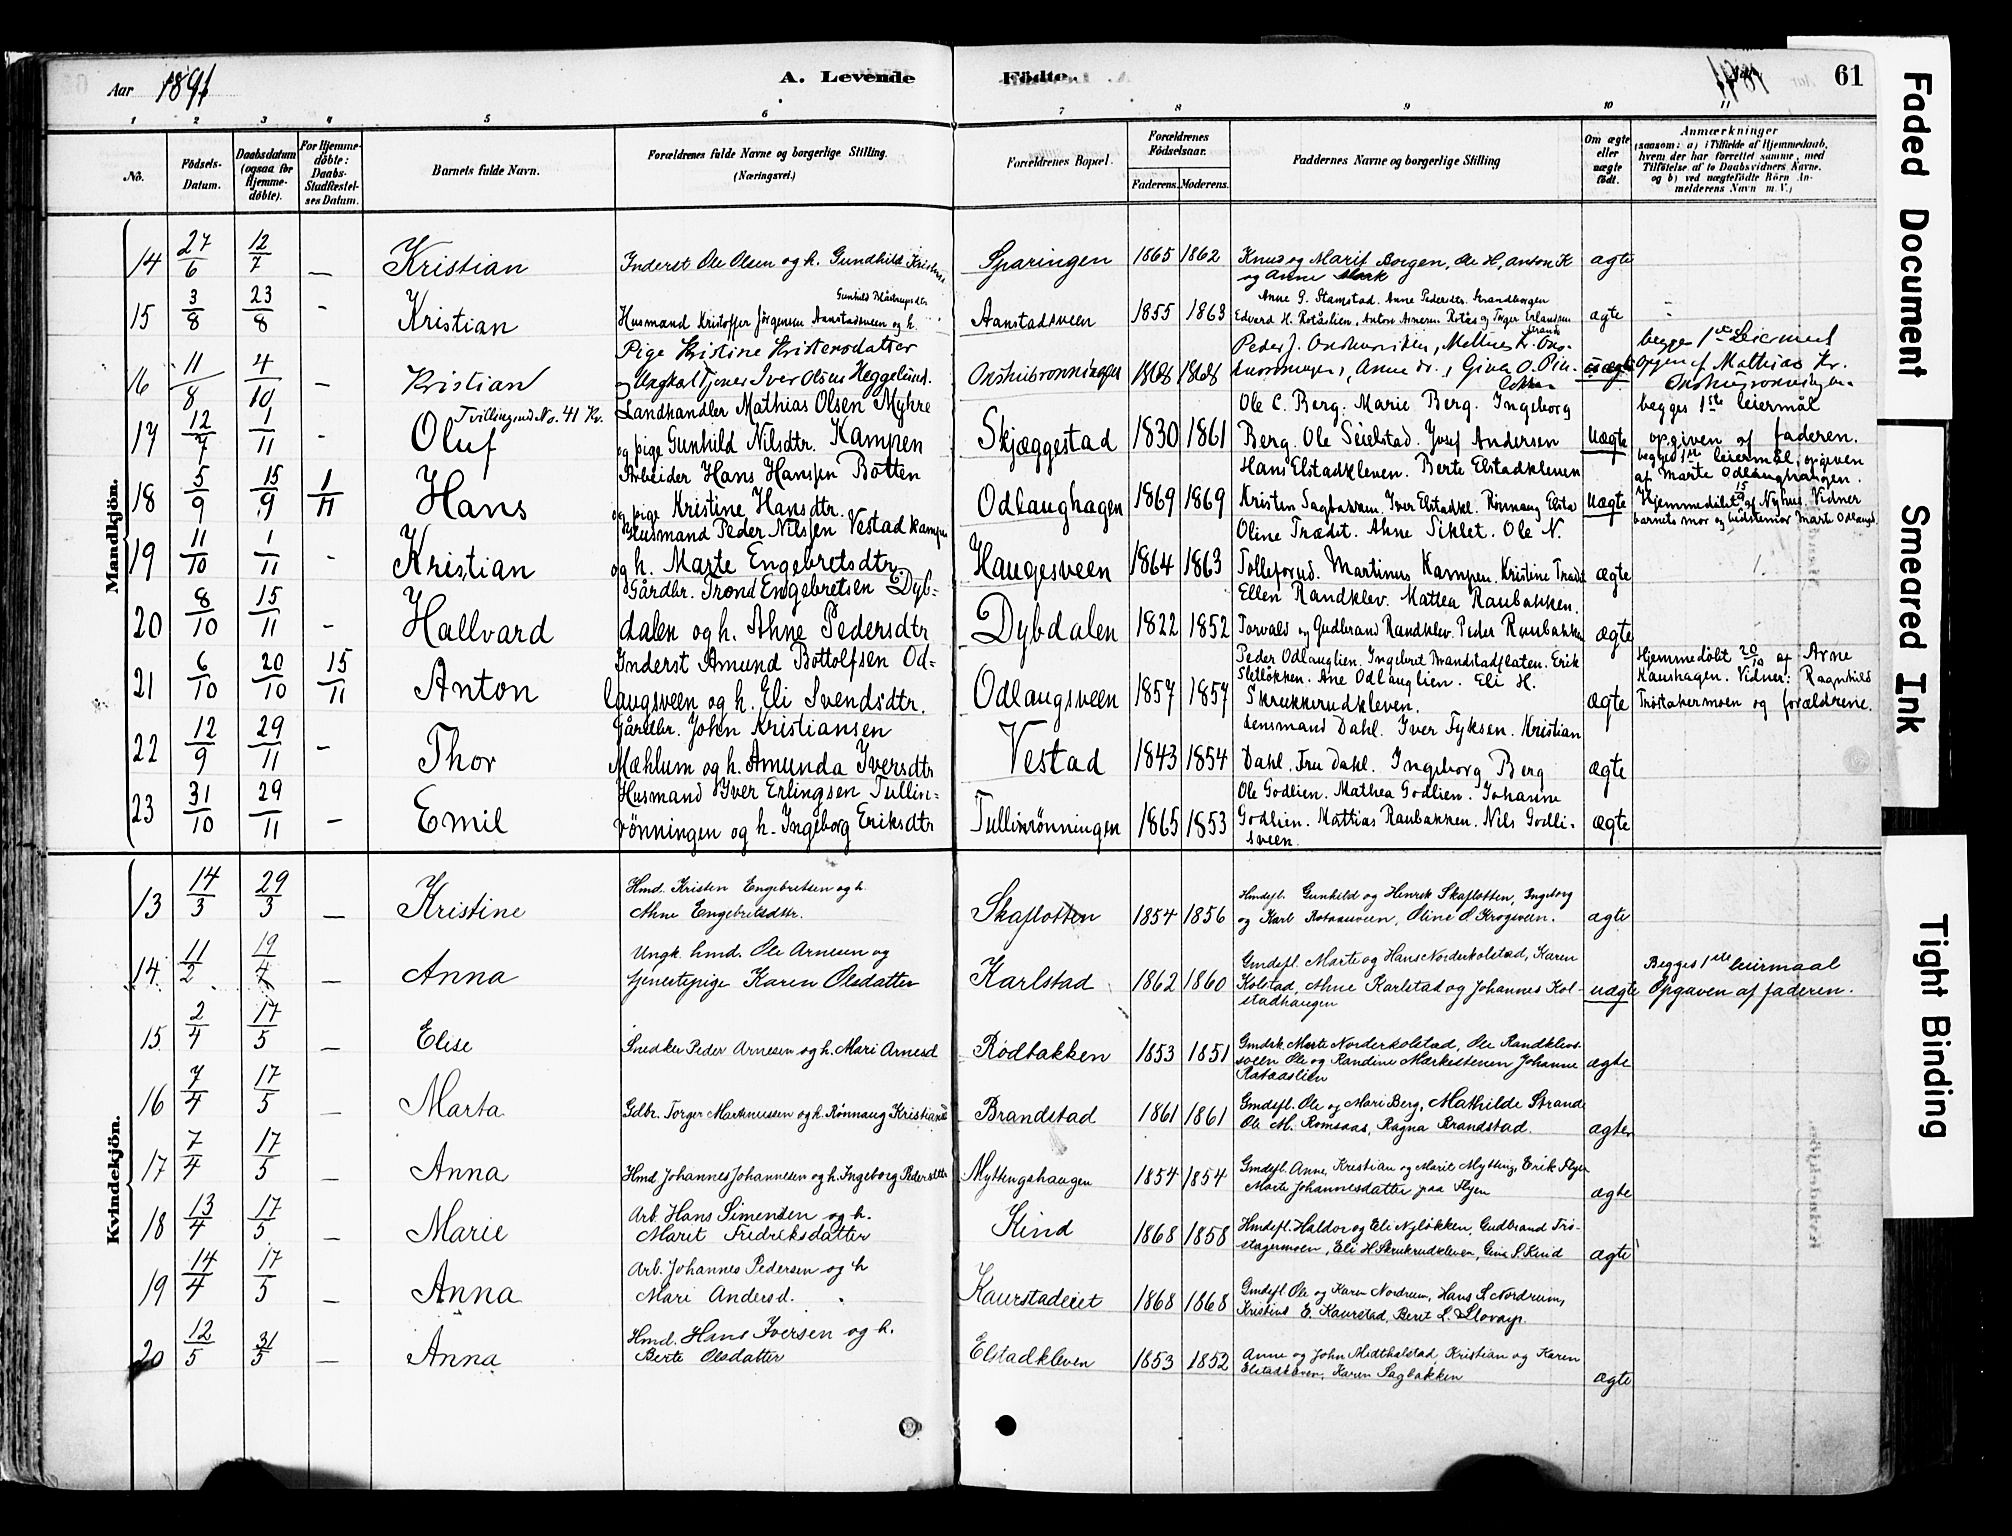 Aar 1891
A. Levende Födte.
61
1 2 3 4 5 6 7 8 9 10 11
No.
Födsels-Datum.
Daabsdatum (ogsaa for Hjemme-döbte).
For Hjemme-döbte: Daabs-Stadfæstel-ses Datum.
Barnets fulde Navn.
Forældrenes fulde Navne og borgerlige Stilling. (Næringsvei.)
Forældrenes Bopæl.
Forældrenes Födselsaar.
Faderens. Moderens.
Faddernes Navne og borgerlige Stilling
Om ægte eller uægte födt.
Anmærkninger
(saasom: a) i Tilfælde af Hjemmedaab,
hvem der har forrettet samme, med
Tilföielse af to Daabsvidners Navne,
og b) ved uægtefödte Börn An-
melderens Navn m. V.)
Mandkjön.
14 27/6 12/7 — Kristian
Inderst Ole Olsen og h. Gundhild
Sparingen 1865 1862
Knud og Marit Borgen, Ole H, Anton K
og Anne
ægte
15 3/8 23/8 - Kristian
Husmand Kristoffer Jörgensen Aanstadsveen og h.
Aanstadsveen 1855 1863
Anne G. Stamstad. Anne Pedersdtr. Strandborgen
Edvard H. Rotåslien, Anton Arnesen Rotås og Torger Erlandsen
Strande
ægte
16 11/8 4/10 - Kristian
Pige Kristine Kristensdatter
og Ungkal Tjener Iver Olsen Heggelund.
1868 1868
uægte
begge 1ste Leiermaal
Opgen af Mathias Kr.
17 12/7 1/11 - Oluf
Tvilling med No. 41 Kv.
Landhandler Mathias Olsen Myhre
og pige Gunhild Nilsdtr. Kampen
Skjæggestad 1830 1861
Ole C. Berg. Marie Berg. Ingeborg
Berg. Ole Seielstad. Josef Andersen
Uægte
begges 1ste leiermål
opgiven af faderen.
18 5/9 15/9 1/11 Hans
Arbeider Hans Hansen Botten
og pige Kristine Hansdtr.
Odlaughagen 1869 1869
Hans Elstadkleven. Berte Elstadkleven
Kristen Sagbakken. Iver Elstadkl. Rönnaug Elsta
Uægte
begges 1ste leiermål, opgiven
af Marte Odlaughaugen.
Hjemmedöbt 15/9 af Nyhus. Vidner
barnets mor og bedstemor Marte Odlaugs.
19 11/10 1/11 - Kristian
Husmand Peder Nilssen Vestad kampen
og h. Marte Engebretsdtr.
Haugesveen 1864 1863
Oline Trædet. Ahne Siklet. Ole N.
Tolleforud. Martinus Kampen. Kristine Træde
ægte
20 8/10 15/11 - Hallvard
Gårdbr. Trond Engebretsen Dyb-
dalen og h. Ahne Pedersdtr
Dybdalen 1822 1852
Ellen Randklev. Mattea Raubakken.
Torvald og Gudbrand Randklev. Peder Raubakken
ægte
21 6/10 20/10 15/11 Anton
Inderst Amund Bottolfsen Od-
laugsveen og h. Eli Svendsdtr.
Odlaugsveen 1857 1857
Peder Odlauglien. Ingebret Brandstadflaten. Erik
Sletløkken. Ane Odlauglien. Eli H.
Skrukkerudkleven.
ægte
Hjemmedöbt 20/10 af Arne
Haushagen. Vidner: Ragnhild
Tröstakermoen og forældrene.
22 12/9 29/11 - Thor
Gårdbr. John Kristiansen
Mæhlum og h. Amunda Iversdtr
Vestad 1843 1854
Lensmand Dahl. Iver Fyksen. Kristian
Dahl. Fru Dahl. Ingeborg Berg
ægte
23 31/10 29/11 — Emil
Husmand Iver Erlingsen Tullin-
rönningen og h. Ingeborg Eriksdtr
Tullinrönningen 1865 1853
Ole Godlien. Mathea Godlien. Johanne
Godlien. Mattias Raubakken. Nils Godli-
sveen.
ægte
Kvindekjön.
13 14/3 29/3 — Kristine
Hmd. Kristen Engebretsen og h.
Ahne Engebretsdttr.
Skaflotten 1854 1856
Hmdsfl. Gunhild og Henrik Skaflotten, Ingeborg
og Karl Rotaasveen, Oline O Krogsveen.
ægte
14. 11/2 19/4 — Anna
Ungk. hmd. Ole Arnesen og
tjenestepige Karen Olsdatter
Karlstad 1862 1860
Gmdsfl. Marte og Hans Norderkolstad, Karen
Kolstad, Ahne Karlstad og Johannes Kol-
stadhaugen
uægte
Begges 1ste leiermaal
Opgaven af faderen.
15. 2/4 17/5 — Elise
Snedker Peder Arnesen og h. Mari Arnesd
Rödbakken 1853 1851
Gmdsk. Marte Norderkolstad, Ole Randklevs-
sveen Ole og Randine Mærkestenen Johanne
Rataaslien
ægte
16 7/4 17/5 — Marta
Gdbr. Torger Martinussen og h. Rönnaug
Brandstad 1861 1861
Gmdsfl. Ole og Mari Berg, Mathilde Strande
Ole M. Romsaas, Ragna Brandstad.
ægte
17 7/4 17/5 — Anna
Hmd. Johannes Johannesen og h. Ingeborg Pedersdatter
Myttingshaugen 1854 1854
Gmdsfl. Anne, Kristian og Marit Mytting, Erik Flyen
Marte Johannesdatter paa Flyen
ægte
18 13/4 17/5 — Marie
Arb. Hans Simensen og h.
Marit Fredriksdatter
Kind 1868 1858
Hmdsfl. Haldor og Eli Nyløkken, Gudbrand Trö-
stagermoen, Eli H Skrukrudkleven, Gine S. Kind
ægte
19 14/4 17/5 — Anna
Arb. Johannes Pedersen og h
Mari Andersd.
Kaurstadeiet 1868 1868
Gmdsfl. Ole og Karen Nordrum, Hans S. Nordrum,
Kristine E. Kaurstad, Berit L.
20 12/5 31/5 — Anna
Hmd. Hans Iversen og h.
Berte Olsdatter
Elstadkleven 1853 1852
Anne og John Midtkolstad, Kristian og Karen
Elstadkleven, Karen Sagbakken
ægte
Faded Document
Smeared Ink
Tight Binding